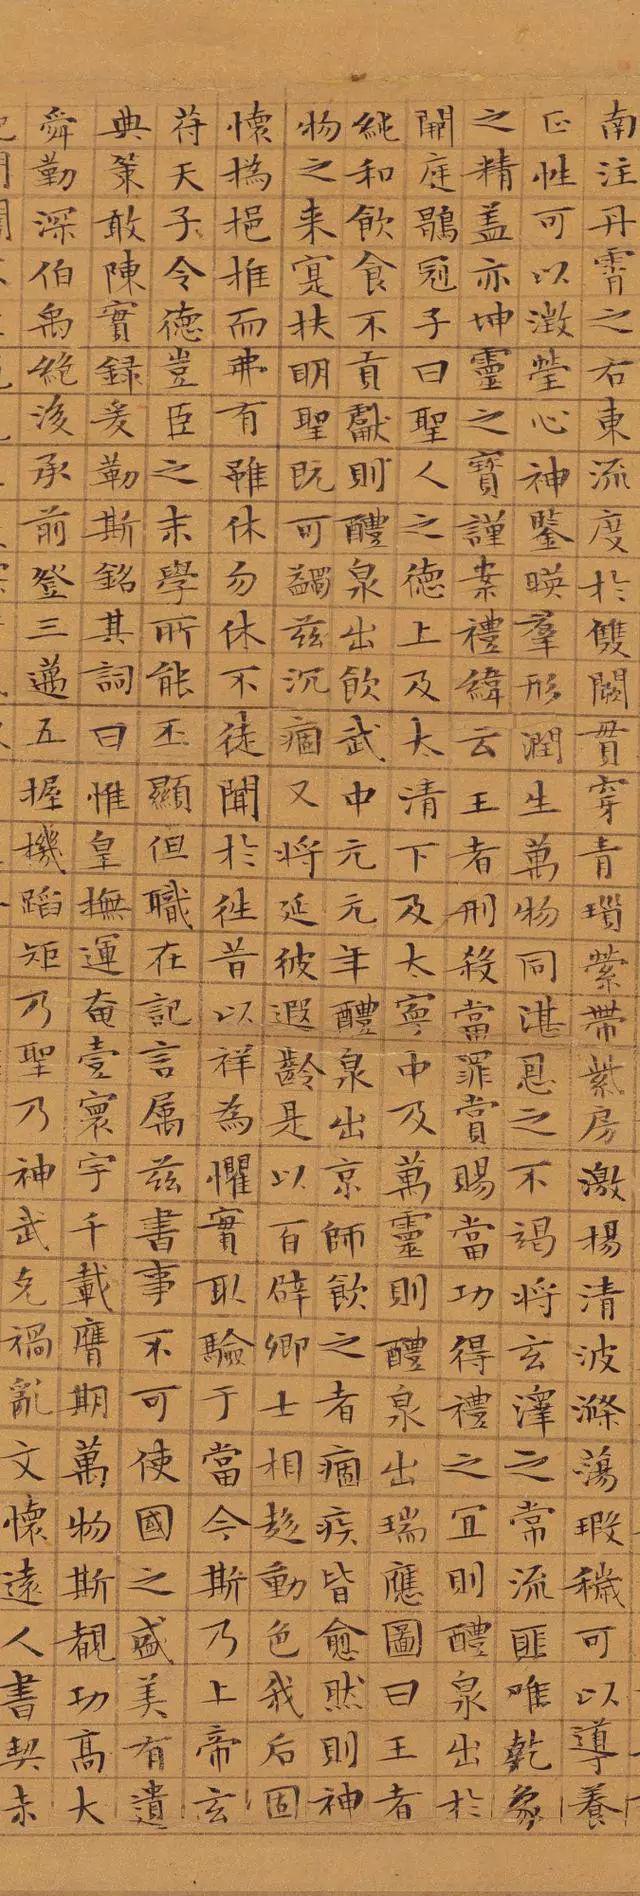 南注丹霄之右東流度於雙闕貫穿青瑣縈帶紫房激揚清波滌蕩瑕穢可以導養
正性可以澂瑩心神鑒暎羣形潤生萬物同湛恩之不竭将玄澤之常流匪唯乾象
之精盖亦坤靈之寶謹案禮緯云王者刑殺當罪賞賜當功得禮之宜則醴泉出於
開庭鶡冠子曰聖人之德上及太清下及太寧中及萬靈則醴泉出瑞應圖曰王者
純和飲食不貢獻則醴泉出飲武中元元年醴泉出京師飲之者痼疾皆愈然則神
物之来寔扶明聖既可蠲兹沉痼又将延彼遐齡是以百辟卿士相趍動色我后固
懷撝挹推而弗有雖休勿休不徒聞於徃昔以祥為懼實取驗于當今斯乃上帝玄
符天子令德豈臣之末學所能丕顯但職在記言属兹書事不可使國之盛美有遺
典策敢陳實録爰勒斯銘其詞曰惟皇撫運奄壹寰宇千載膺期萬物斯覩功高大
舜勤深伯禹絶後承前登三邁五握機蹈矩乃聖乃神武克禍亂文懷遠人書契未